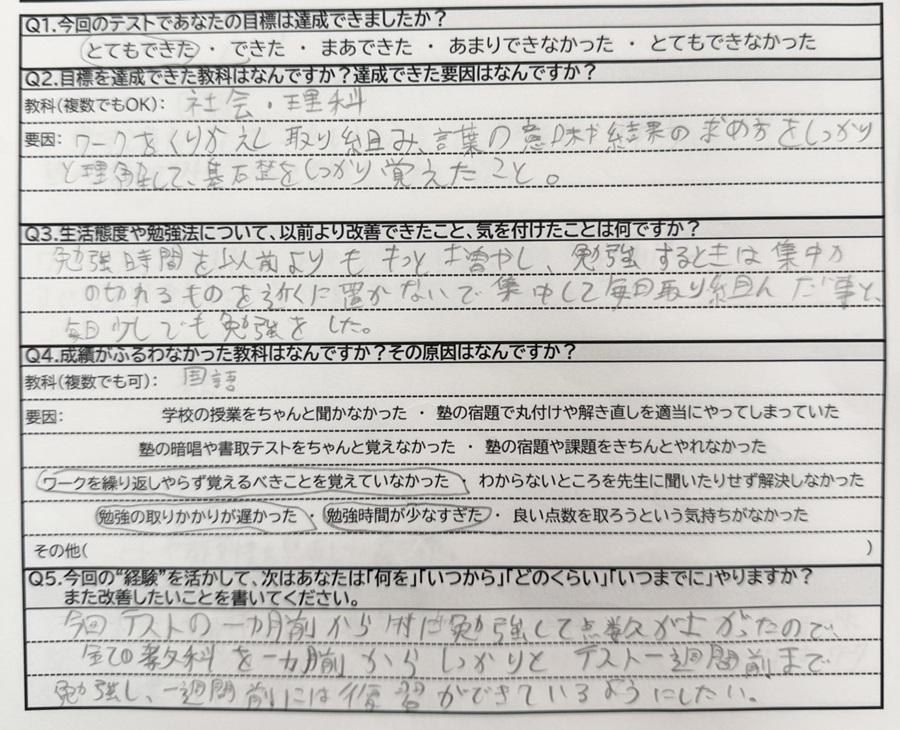 Q1.今回のテストであなたの目標は達成できましたか？
とてもできた ・ できた ・ まあできた ・ あまりできなかった ・ とてもできなかった
Q2.目標を達成できた教科はなんですか？達成できた要因はなんですか？
教科(複数でもOK)： 社会・理科
要因： ワークをくりかえし取り組み、言葉の意味や結果の求め方をしっかり
と理解して、基石礎をしっかり覚えたこと。
Q3.生活態度や勉強法について、以前より改善できたこと、気を付けたことは何ですか？
勉強時間を以前よりももっと増やし、勉強するときは集中力
の切れるものを近くに置かないで集中して毎日取り組んだ事と、
毎日少しでも勉強をした。
Q4.成績がふるわなかった教科はなんですか？その原因はなんですか？
教科(複数でも可)： 国語
要因： 学校の授業をちゃんと聞かなかった ・ 塾の宿題で丸付けや解き直しを適当にやってしまっていた
塾の暗唱や書取テストをちゃんと覚えなかった ・ 塾の宿題や課題をきちんとやれなかった
ワークを繰り返しやらず覚えるべきことを覚えていなかった ・ わからないところを先生に聞いたりせず解決しなかった
勉強の取りかかりが遅かった ・ 勉強時間が少なすぎた ・ 良い点数を取ろうという気持ちがなかった
その他( )
Q5.今回の“経験”を活かして、次はあなたは「何を」「いつから」「どのくらい」「いつまでに」やりますか？
また改善したいことを書いてください。
今回テストの一カ月前から勉強して点数が上がったので、
全ての教科を一カ月前からしっかりとテスト一週間前まで
勉強し、一週間前には復習ができているようにしたい。